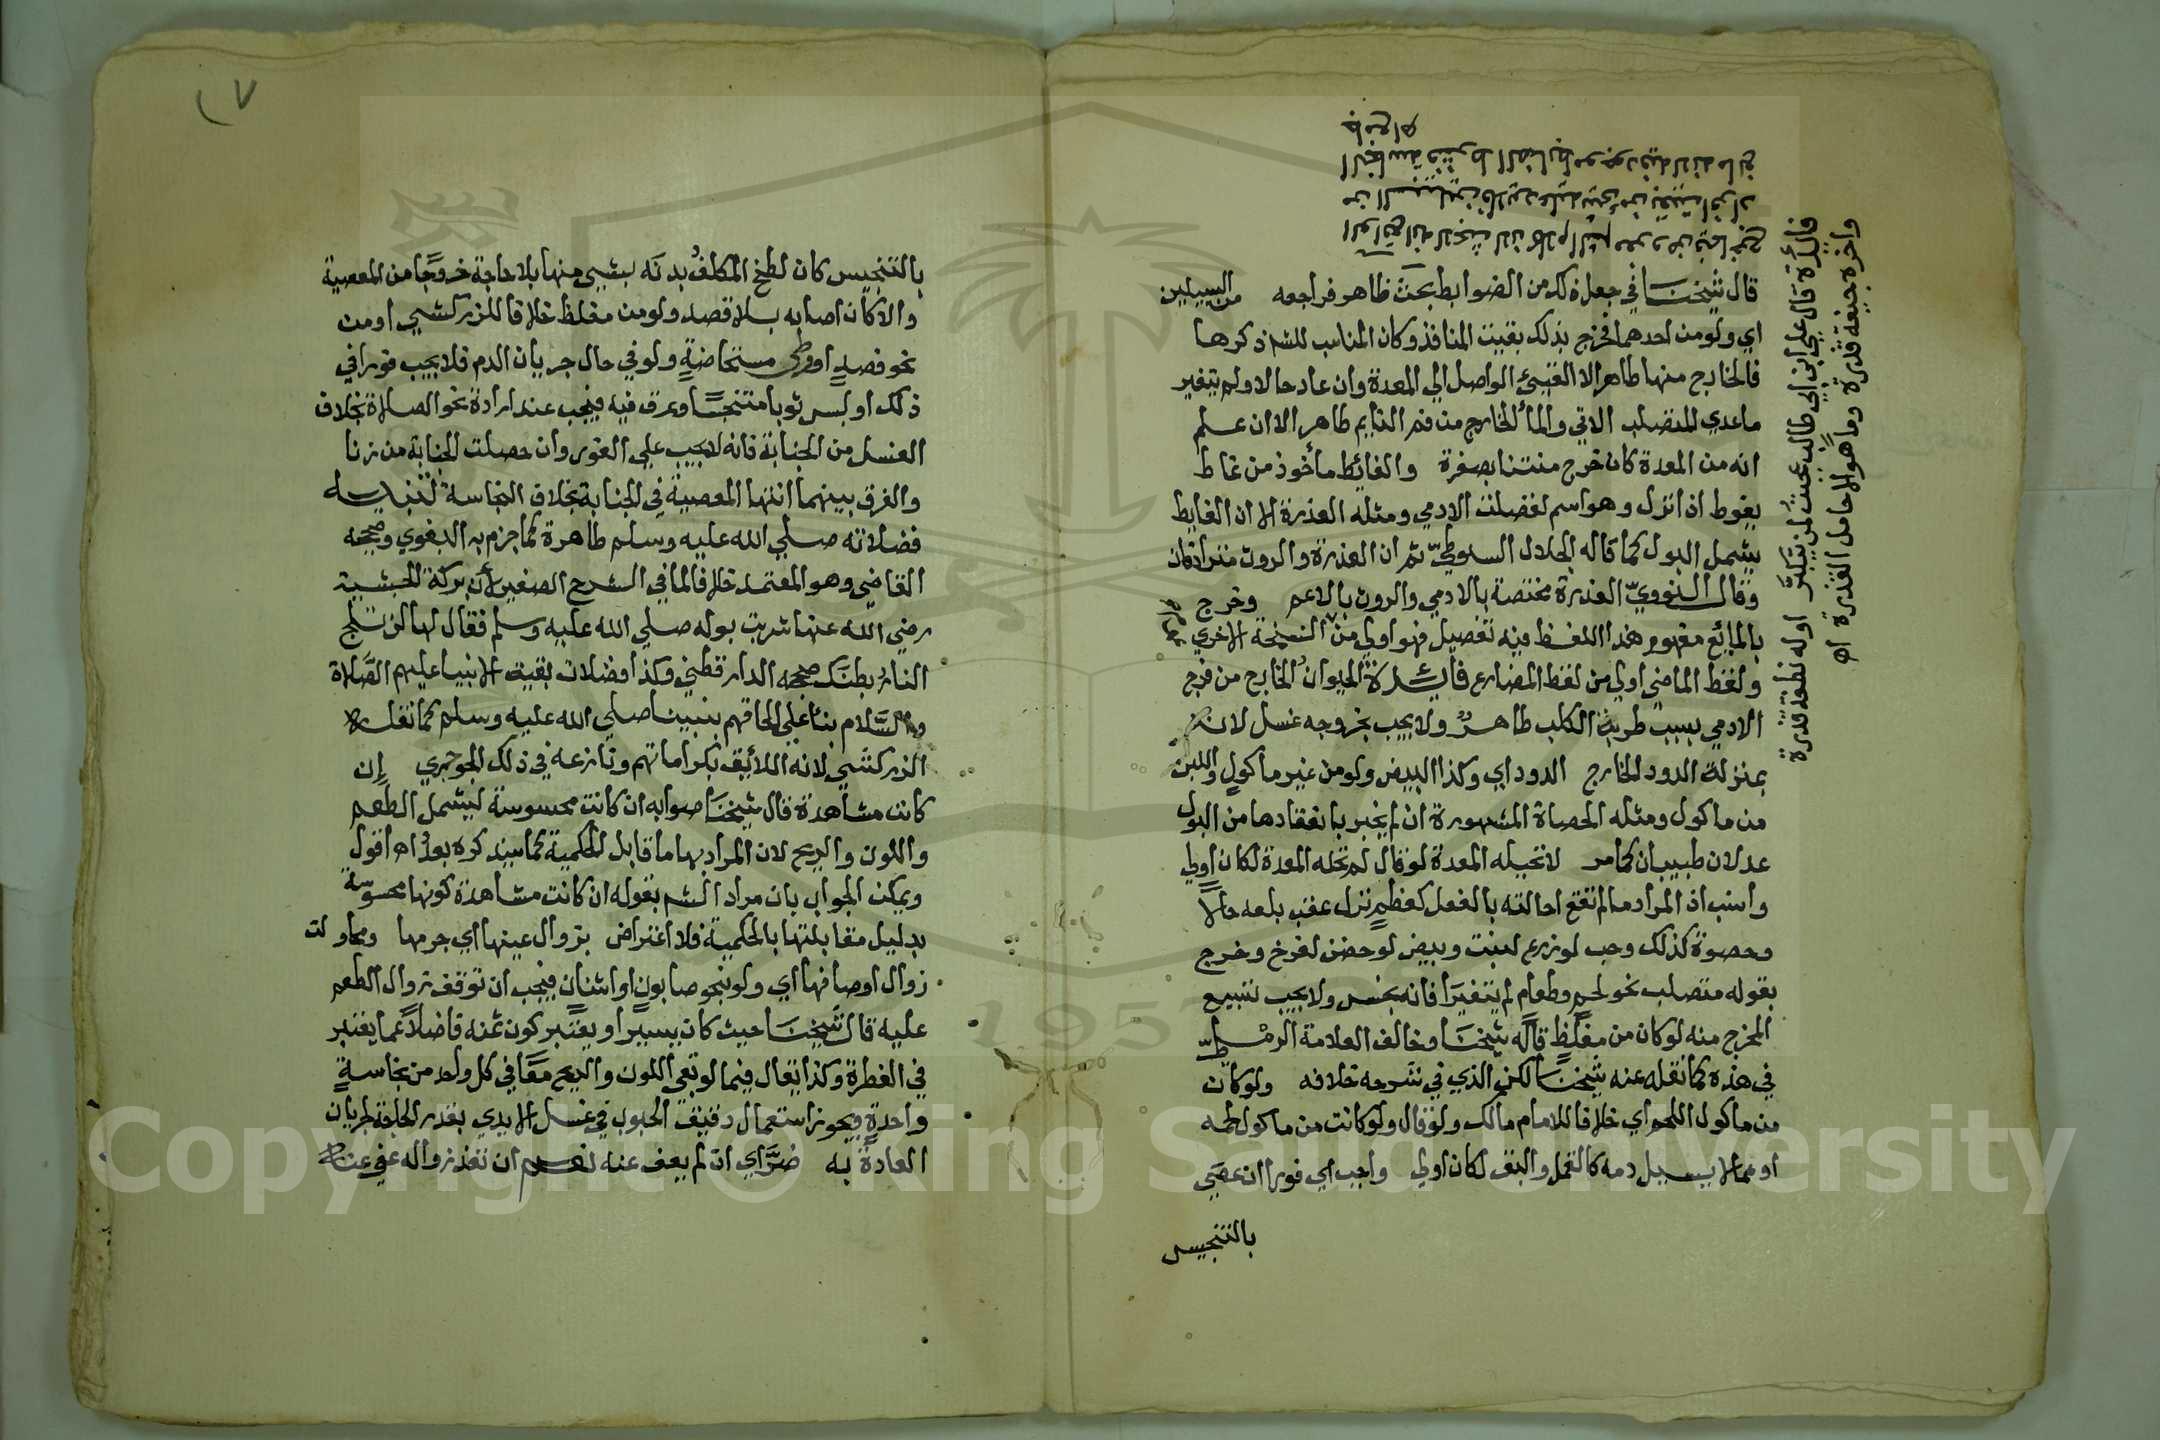 قال شيخنا في جعل ذلك من الضوابط بحث ظاهر فراجعه من السبيلين
اي ولو من احدهما فخرج بذلك بقيت المنافذ وكان المناسب للشم ذكرها
فالخارج منها طاهر الا القيئ الواصل الي المعدة وان عاد حالا ولم يتغير
ما عدي المتصلب الاتي والمأ الخارج من فم النايم طاهر الا ان علم
انه من المعدة كان خرج منتنا بصفرة والغائط مأخوذ من غاط
يغوط اذا نزل وهو اسم لفضلت الادمي ومثله العذرة الا ان الغايط
يشمل البول كما قاله الجلال السيوطيّ ثم ان العذرة والروث مترادفان
وقال النوويّ العذرة مختصة بالادمي والروث بالاعم وخرج
بالمايع مفهوم هذا اللفظ فيه تفصيل فهو اولي من النسخة الاخري
ولفظ الماضي اولي من لفظ المضارع فايدة الحيوان الخارج من فرج
الادمي بسبب طريق الكلب طاهر ولا يجب بخروجه غسل لانه
بمنزلة الدود الخارج الدود اي وكذا البيض ولو من غير ماكول واللبن
من ماكول ومثله الحصاة المشهورة ان لم يخبر بانعقادها من البول
عدلان طبيبان كما مر لا تحيله المعدة لو قال لم تحله المعدة لكان اولي
وأنسب اذ المراد ما لم تقع احالته بالفعل كعظم نزل عقب بلعه حالا
وحصوة كذلك وحب لو زرع لنبت وبيض لو حضن لفرخ وخرج
بقوله متصلب نحو لحم وطعام لم يتغيرا فانه نجس ولا يجب تسبيع
المخرج منه لو كان من مغلظ قاله شيخنا وخالف العلامة الرمليّ
في هذه كما نقله عنه شيخنا لكن الذي في شرحه خلافه ولو كان
من ماكول اللحم اي خلافا للامام مالك ولو قال ولو كانت من ماكول لحمه
او مما لا يسيل دمه كالقمل والبق لكان اولي واجب اي فورا ان عصي
بالتنجيس
فائدة قال علي ابن ابي طالب عجبت لمن يتكبر اوله نطفة قذرة
واخره جيفة قذرة وما هو الا حامل القذرة اه
١٧
بالتنجيس كان لطخ المكلف بدنه بشي منها بلا حاجة خروجا من المعصية
والا كان اصابه بلا قصد ولو من مغلظ خلافا للزركشي او من
نحو فصد او وطئ مستحاضة ولو في حال جريان الدم فلا يجب فورا في
ذلك او لبس ثوبا متنجسا وعرق فيه فيجب عند ارادة نحو الصلاة بخلاف
الغسل من الجنابة فانه لا يجب علي الفور وان حصلت الجنابة من زنا
والفرق بينهما انتها المعصية في الجنابة بخلاف النجاسة تنبيه
فضلاته صلي الله عليه وسلم طاهرة كما جزم به البغوي وصححه
القاضي وهو المعتمد خلافا لما في الشرح الصغير لأن بركة الحبشية
رضي الله عنها شربت بوله صلي الله عليه وسلم فقال لها لن تلج
النار بطنك صححه الدارقطني وكذا فضلات بقيت الانبيا عليهم الصَّلاة
والسَّلام بنا علي الحاقهم بنبينا صلي الله عليه وسلم كما نقله
الزركشي لانه اللائيق بكراماتهم ونازعه في ذلك الجوجري إن
كانت مشاهدة قال شيخنا صوابه ان كانت محسوسة ليشمل الطعم
واللون والريح لان المراد بها ما قابل الحكمية كما سيذكره بعد اه اقول
ويمكن الجواب بان مراد الشم بقوله ان كانت مشاهدة كونها محسوسة
بدليل مقابلتها بالحكمية فلا اعتراض بزوال عينها اي جرمها ومحاولت
زوال اوصافها اي ولو بنحو صابون او اشنان فيجب ان توقف زوال الطعم
عليه قال شيخنا حيث كان يسيرا ويعتبر كون ثمنه فاضلا عما يعتبر
في الفطرة وكذا يقال فيما لو بقي اللون والريح معا في كل واحد من نجاسة
واحدة ويجوز استعمال دقيق الحبوب في غسل الايدي بقدر الحاجة لجريان
العادة به ضر اي ان لم يعف عنه نعم ان تعذر زواله عفي عنه